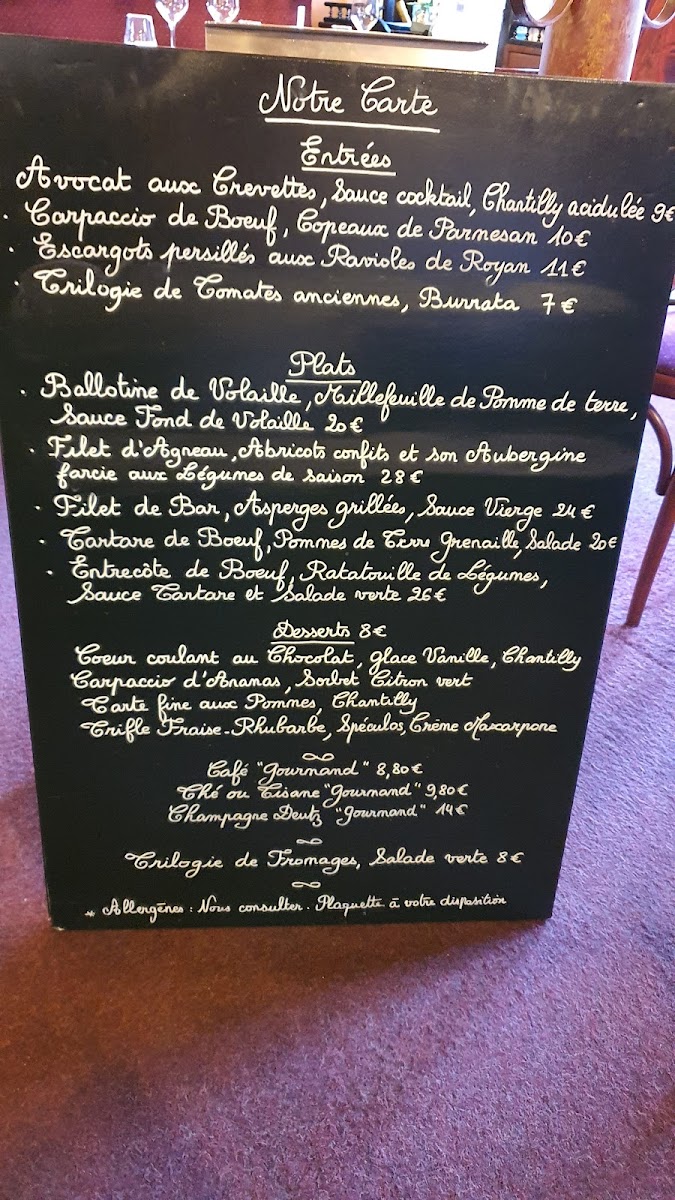 Notre Carte
Entrées
Avocat aux Crevettes, Sauce cocktail, Chantilly acidulée 9€
· Carpaccio de Boeuf, Copeaux de Parmesan 10€
· Escargots persillés aux Ravioles de Royan 11€
· Trilogie de Tomates anciennes, Burrata 7€
Plats
· Ballotine de Volaille, Millefeuille de Pomme de terre,
Sauce Fond de Volaille 20€
· Filet d'Agneau, Abricots confits et son Aubergine
farcie aux Légumes de saison 28€
· Filet de Bar, Asperges grillées, Sauce Vierge 24€
· Tartare de Boeuf, Pommes de Terre Grenaille, Salade 20€
· Entrecôte de Boeuf, Ratatouille de Légumes,
Sauce Tartare et Salade verte 26€
Desserts 8€
Coeur coulant au Chocolat, glace Vanille, Chantilly
Carpaccio d'Ananas, Sorbet Citron vert
Tarte fine aux Pommes, Chantilly
Trifle Fraise-Rhubarbe, Spéculos, Crème Mascarpone
Café "Gourmand" 8,80€
Thé ou Tisane "Gourmand" 9,80€
Champagne Deutz "gourmand" 14€
Trilogie de Fromages, Salade verte 8€
* Allergènes : Nous consulter. Plaquette à votre disposition